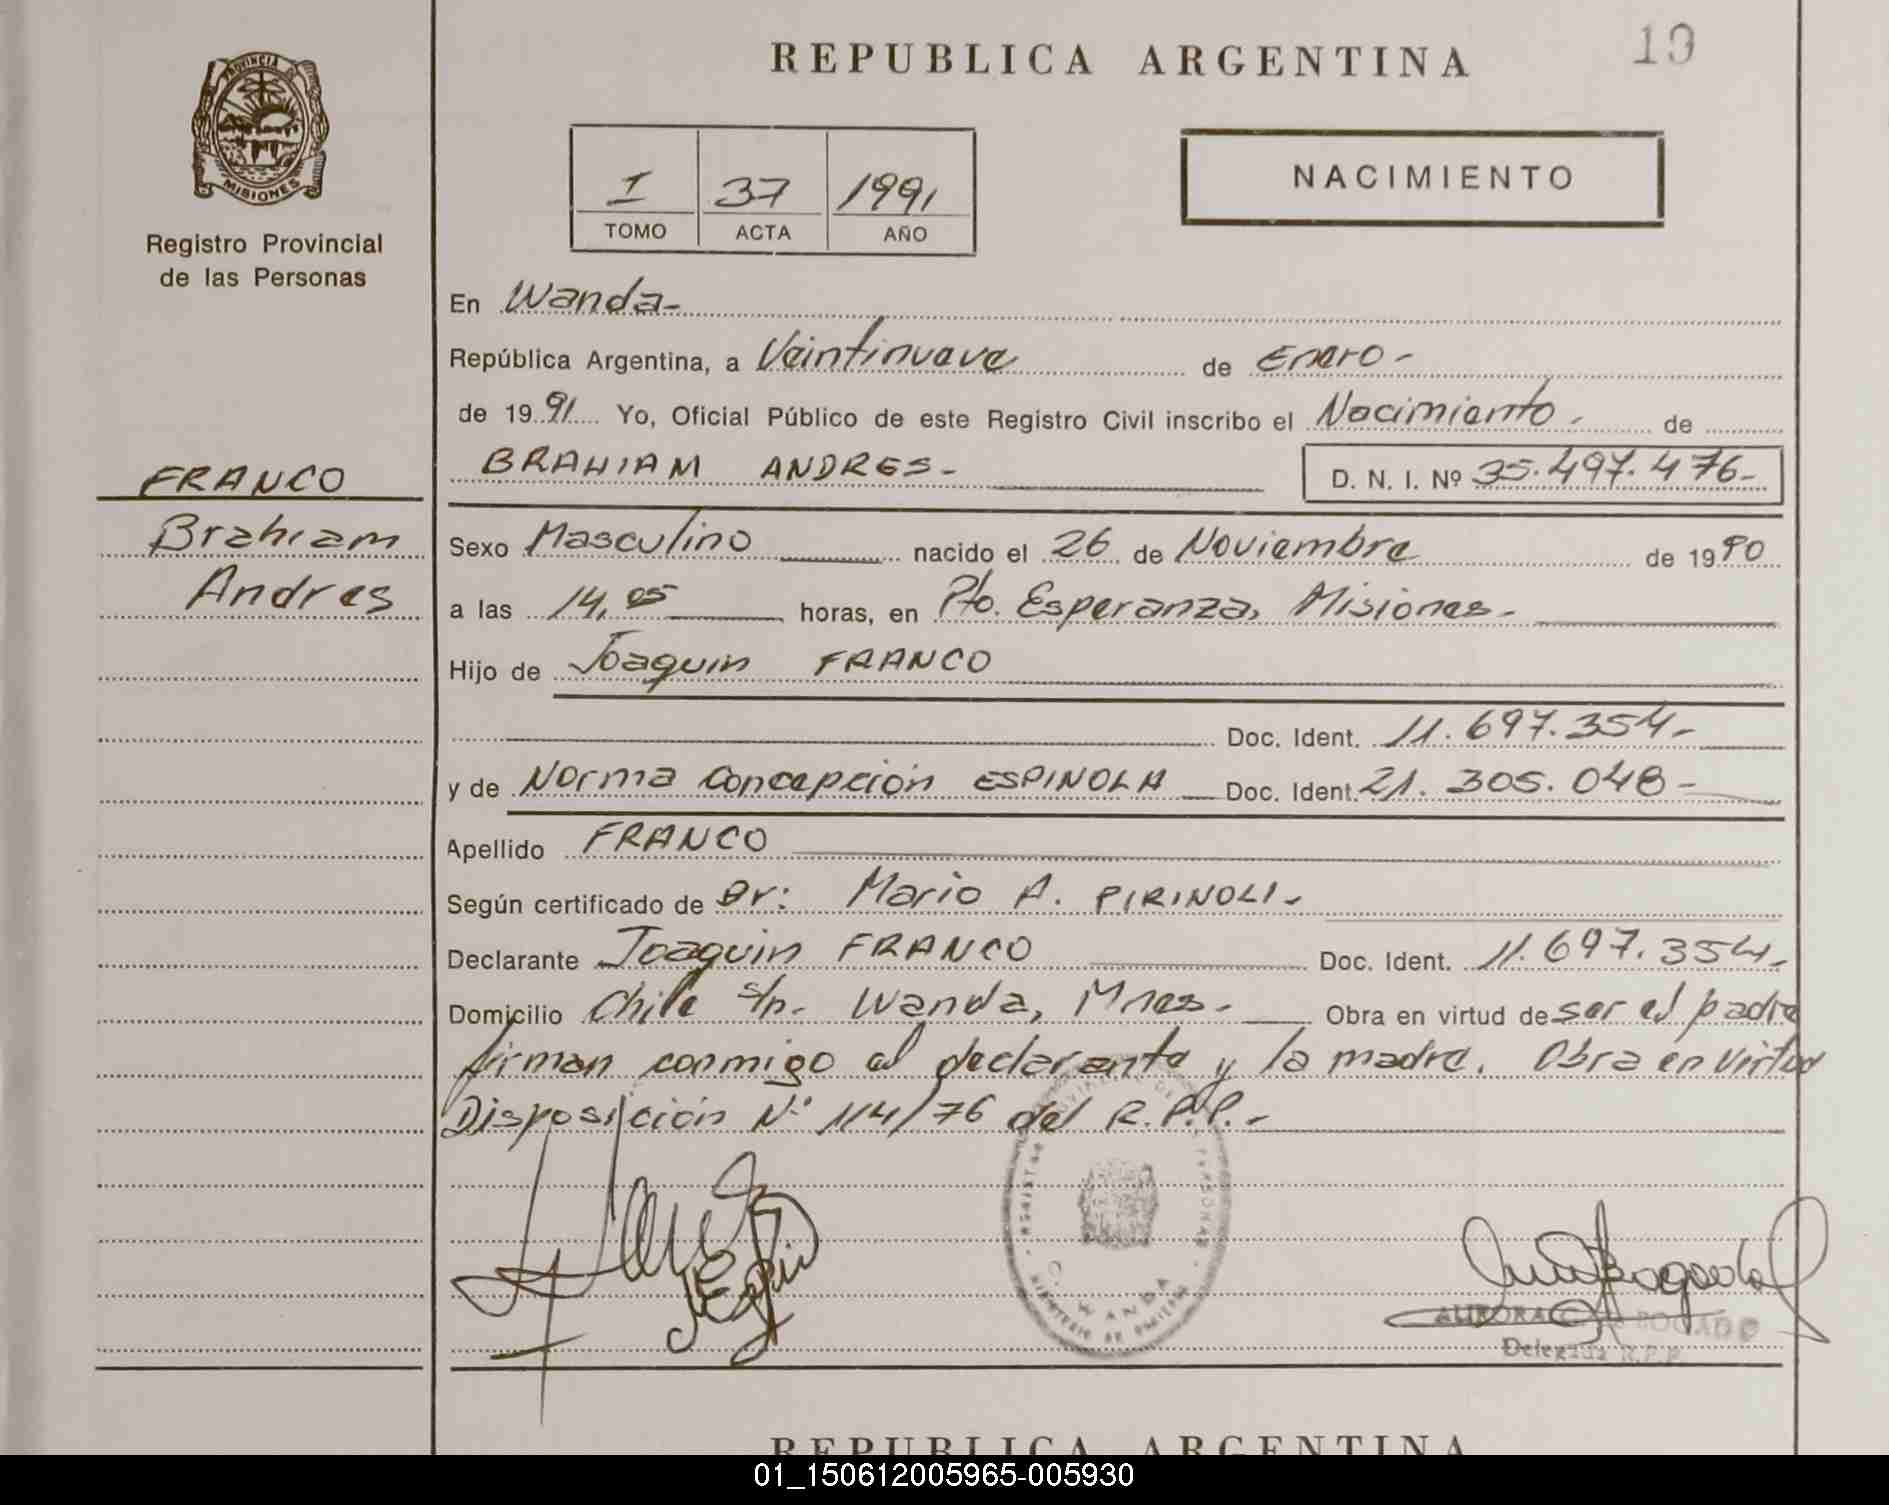 REPUBLICA ARGENTINA
19
PROVINCIA DE
MISIONES
Registro Provincial
de las Personas
I 37 1991
TOMO ACTA AÑO
NACIMIENTO
En Wanda-
República Argentina, a Veintinueve de Enero-
de 1991 Yo, Oficial Público de este Registro Civil inscribo el Nacimiento. de
FRANCO
BRAHIAM ANDRES- D. N. I. Nº 35.497.476-
Brahiam
Sexo Masculino nacido el 26 de Noviembre de 1990
Andres
a las 14,05 horas, en Pto. Esperanza, Misiones-
Hijo de Joaquin FRANCO
Doc. Ident. 11.697.354-
y de Norma Concepción ESPINOLA Doc. Ident. 21.305.048-
Apellido FRANCO
Según certificado de Dr: Mario A. PIRINOLI-
Declarante Joaquin FRANCO Doc. Ident. 11.697.354-
Domicilio Chile s/n. Wanda, Mnes- Obra en virtud de ser el padre
firman conmigo el declarante y la madre. Obra en virtud
Disposición Nº 114/76 del R.P.P.-
WANDA
AURORA C. BOGADO
Delegada R.P.P.
REPUBLICA ARGENTINA
01_150612005965-005930